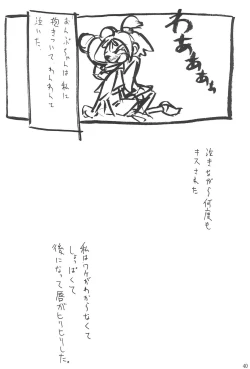 わあぁぁぁん
おんぷちゃんは私に
抱きついてわんわんて
泣いた。
泣きながら何度も
キスされた
私はワケがわからなくて
しょっぱくて
後になって唇がヒリヒリした。
40